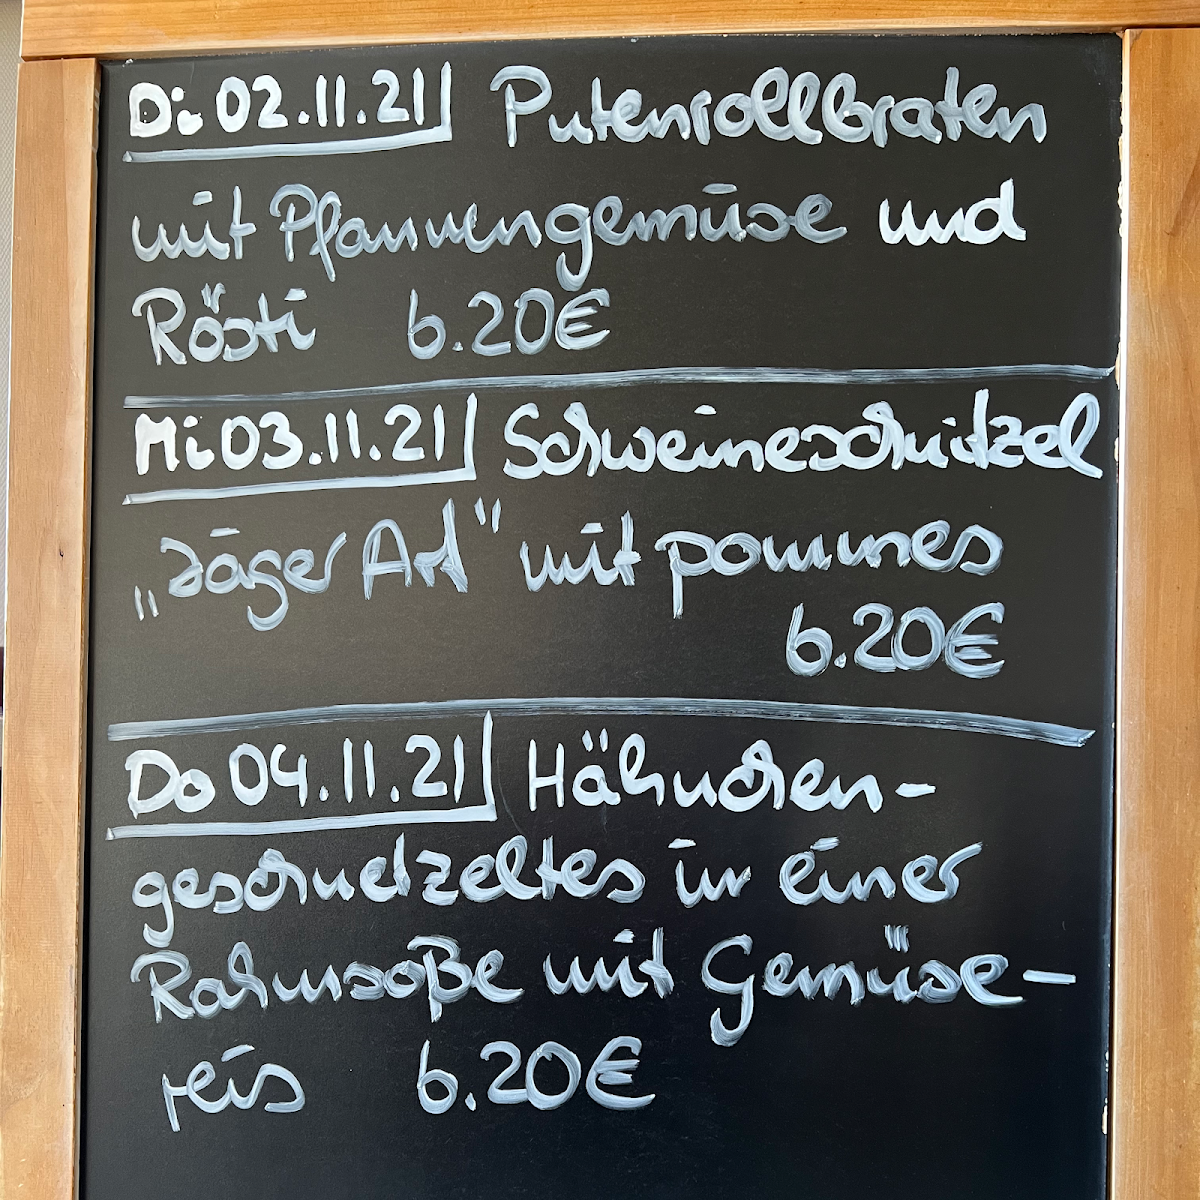 Di 02.11.21 Putenrollbraten
mit Pfannengemüse und
Rösti 6.20€
Mi 03.11.21 Schweineschnitzel
„Jäger Art" mit pommes
6.20€
Do 04.11.21 Hähnchen-
geschnetzeltes in einer
Rahmsoße mit Gemüse-
reis 6.20€